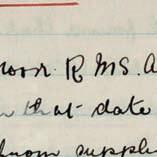 moor R.M.S. A
that date
from suppl